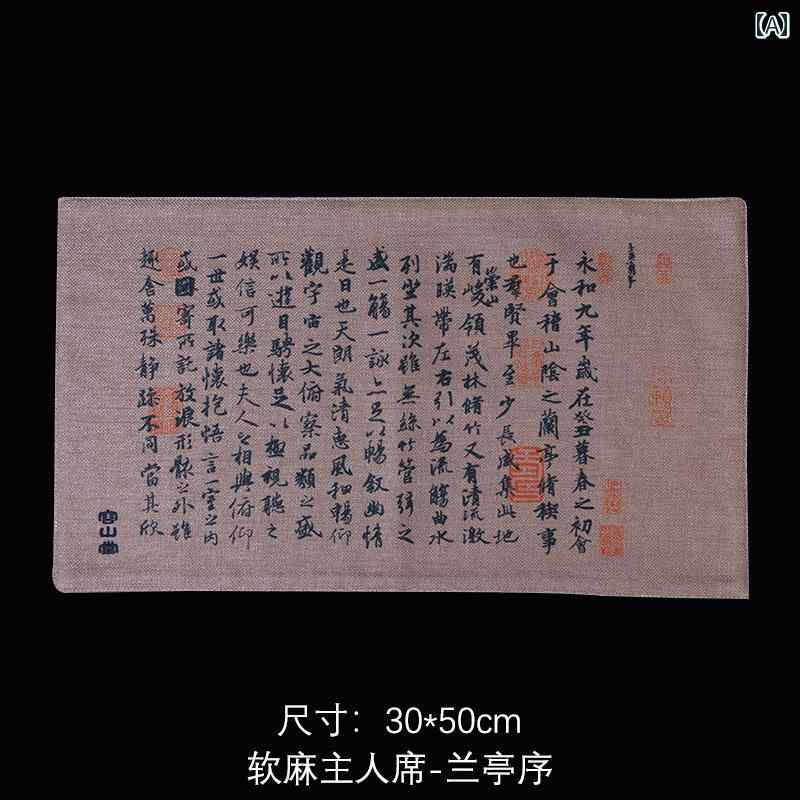 【A】
永和九年歲在癸丑暮春之初會
于會稽山陰之蘭亭脩禊事
也羣賢畢至少長咸集此地
有崇山峻領茂林脩竹又有清流激
湍暎帶左右引以為流觴曲水
列坐其次雖無絲竹管弦之
盛一觴一詠亦足以暢叙幽情
是日也天朗氣清惠風和暢仰
觀宇宙之大俯察品類之盛
所以遊目騁懷足以極視聽之
娛信可樂也夫人之相與俯仰
一世或取諸懷抱悟言一室之內
或因寄所託放浪形骸之外雖
趣舍萬殊靜躁不同當其欣
容山堂
尺寸：30*50cm
软麻主人席-兰亭序